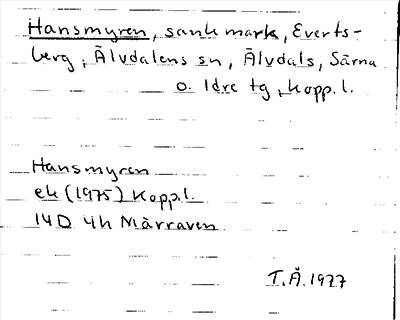 Hansmyren, sank mark, Everts-
berg, Älvdalens sn, Älvdals, Särna
o. Idre tg, Kopp. l.
Hansmyren
ek (1975) Kopp. l.
14D 4h Mårraven
T.Å. 1977